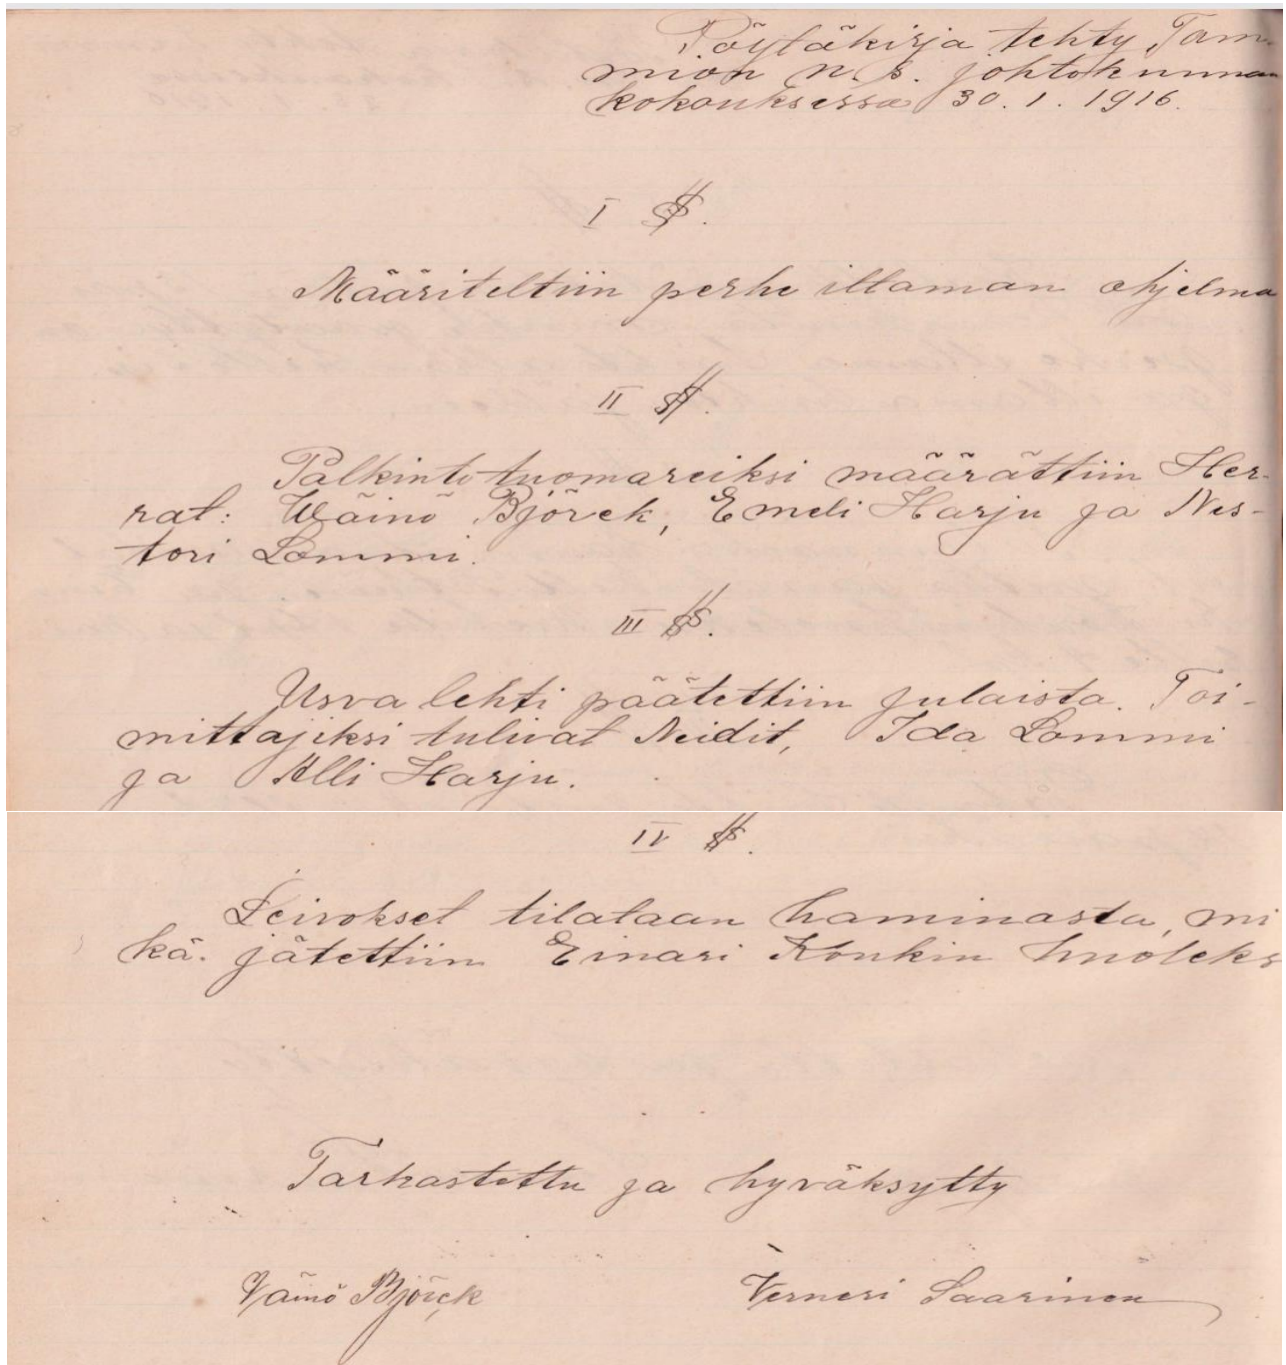 Pöytäkirja tehty Tam-
mion n. s. johtokunnan
kokouksessa 30. 1. 1916.
I §.
Määriteltiin perhe iltaman ohjelma
II §.
Palkintotuomareiksi määrättiin Her-
rat: Wäinö Björck, Emeli Harju ja Nes-
tori Lommi.
III §§.
Usva lehti päätettiin julaista. Toi-
mittajiksi tulivat Neidit, Ida Lommi
ja Alli Harju.
IV §§.
Leivokset tilataan haminasta, mi
kä. jätettiin Einari Konkin huoleks
Tarkastettu ja hyväksytty
Väinö Björck Verneri Saarinen